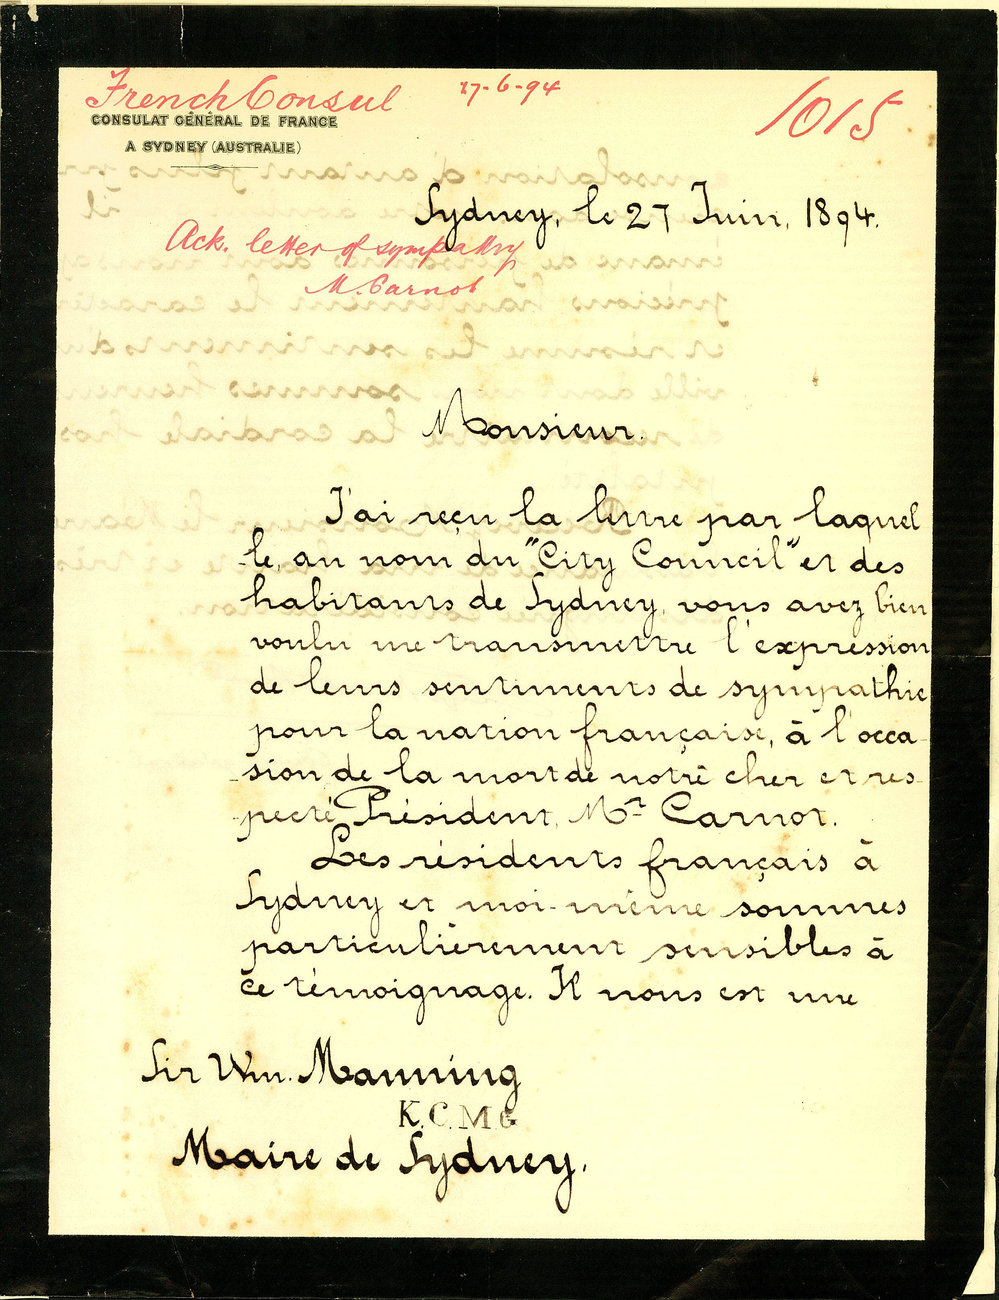 French Consul 27-6-94 1015
CONSULAT GÉNÉRAL DE FRANCE
A SYDNEY (AUSTRALIE)
Sydney, le 27 Juin, 1894.
Ack. letter of sympathy
M. Carnot
Monsieur.
J'ai reçu la lettre par laquel
-le, au nom du "City Council" et des
habitants de Sydney, vous avez bien
voulu me transmettre l'expression
de leurs sentiments de sympathie
pour la nation française, à l'occa-
-sion de la mort de notre cher et res-
-pecté Président, Mr Carnot.
Les résidents français à
Sydney et moi-même sommes
particulièrement sensibles à
ce témoignage. Il nous est une
Sir Wm. Manning
K.C.M.G
Maire de Sydney.